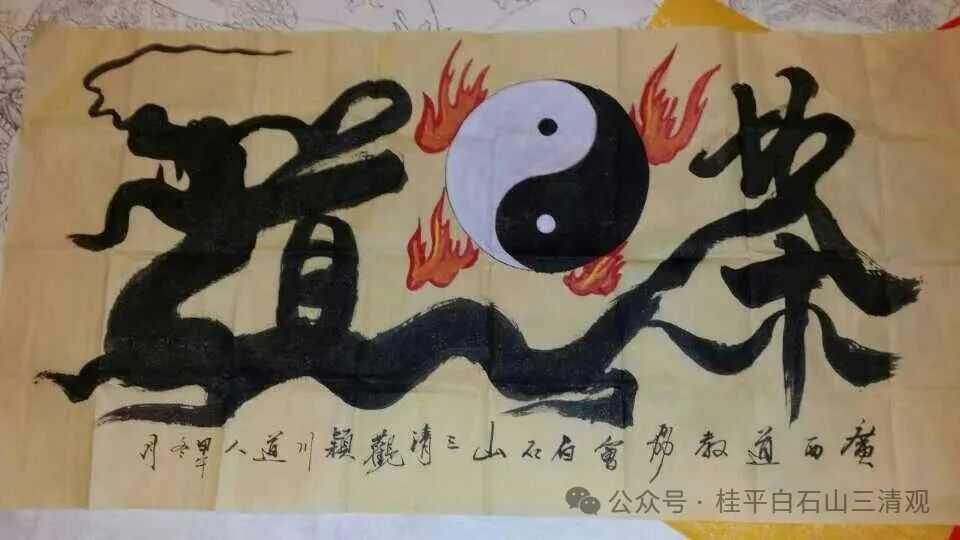 道
廣西道教協會白石山三清觀穎川道人冬月
公众号·桂平白石山三清观